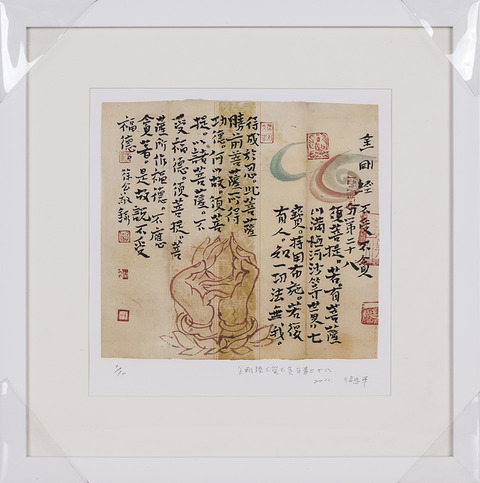 金剛經 不受不貪
分第二十八
須菩提。若有菩薩
以滿恆河沙等世界。七
寶。持用布施。若復
有人。知一切法無我。
得成於忍。此菩薩
勝前菩薩所得
功德。何以故。須菩
提。以諸菩薩。不
受福德。須菩提。菩
薩所作福德。不應
貪著。是故說不受
福德。
敬錄
金剛經不受不貪分第二十八